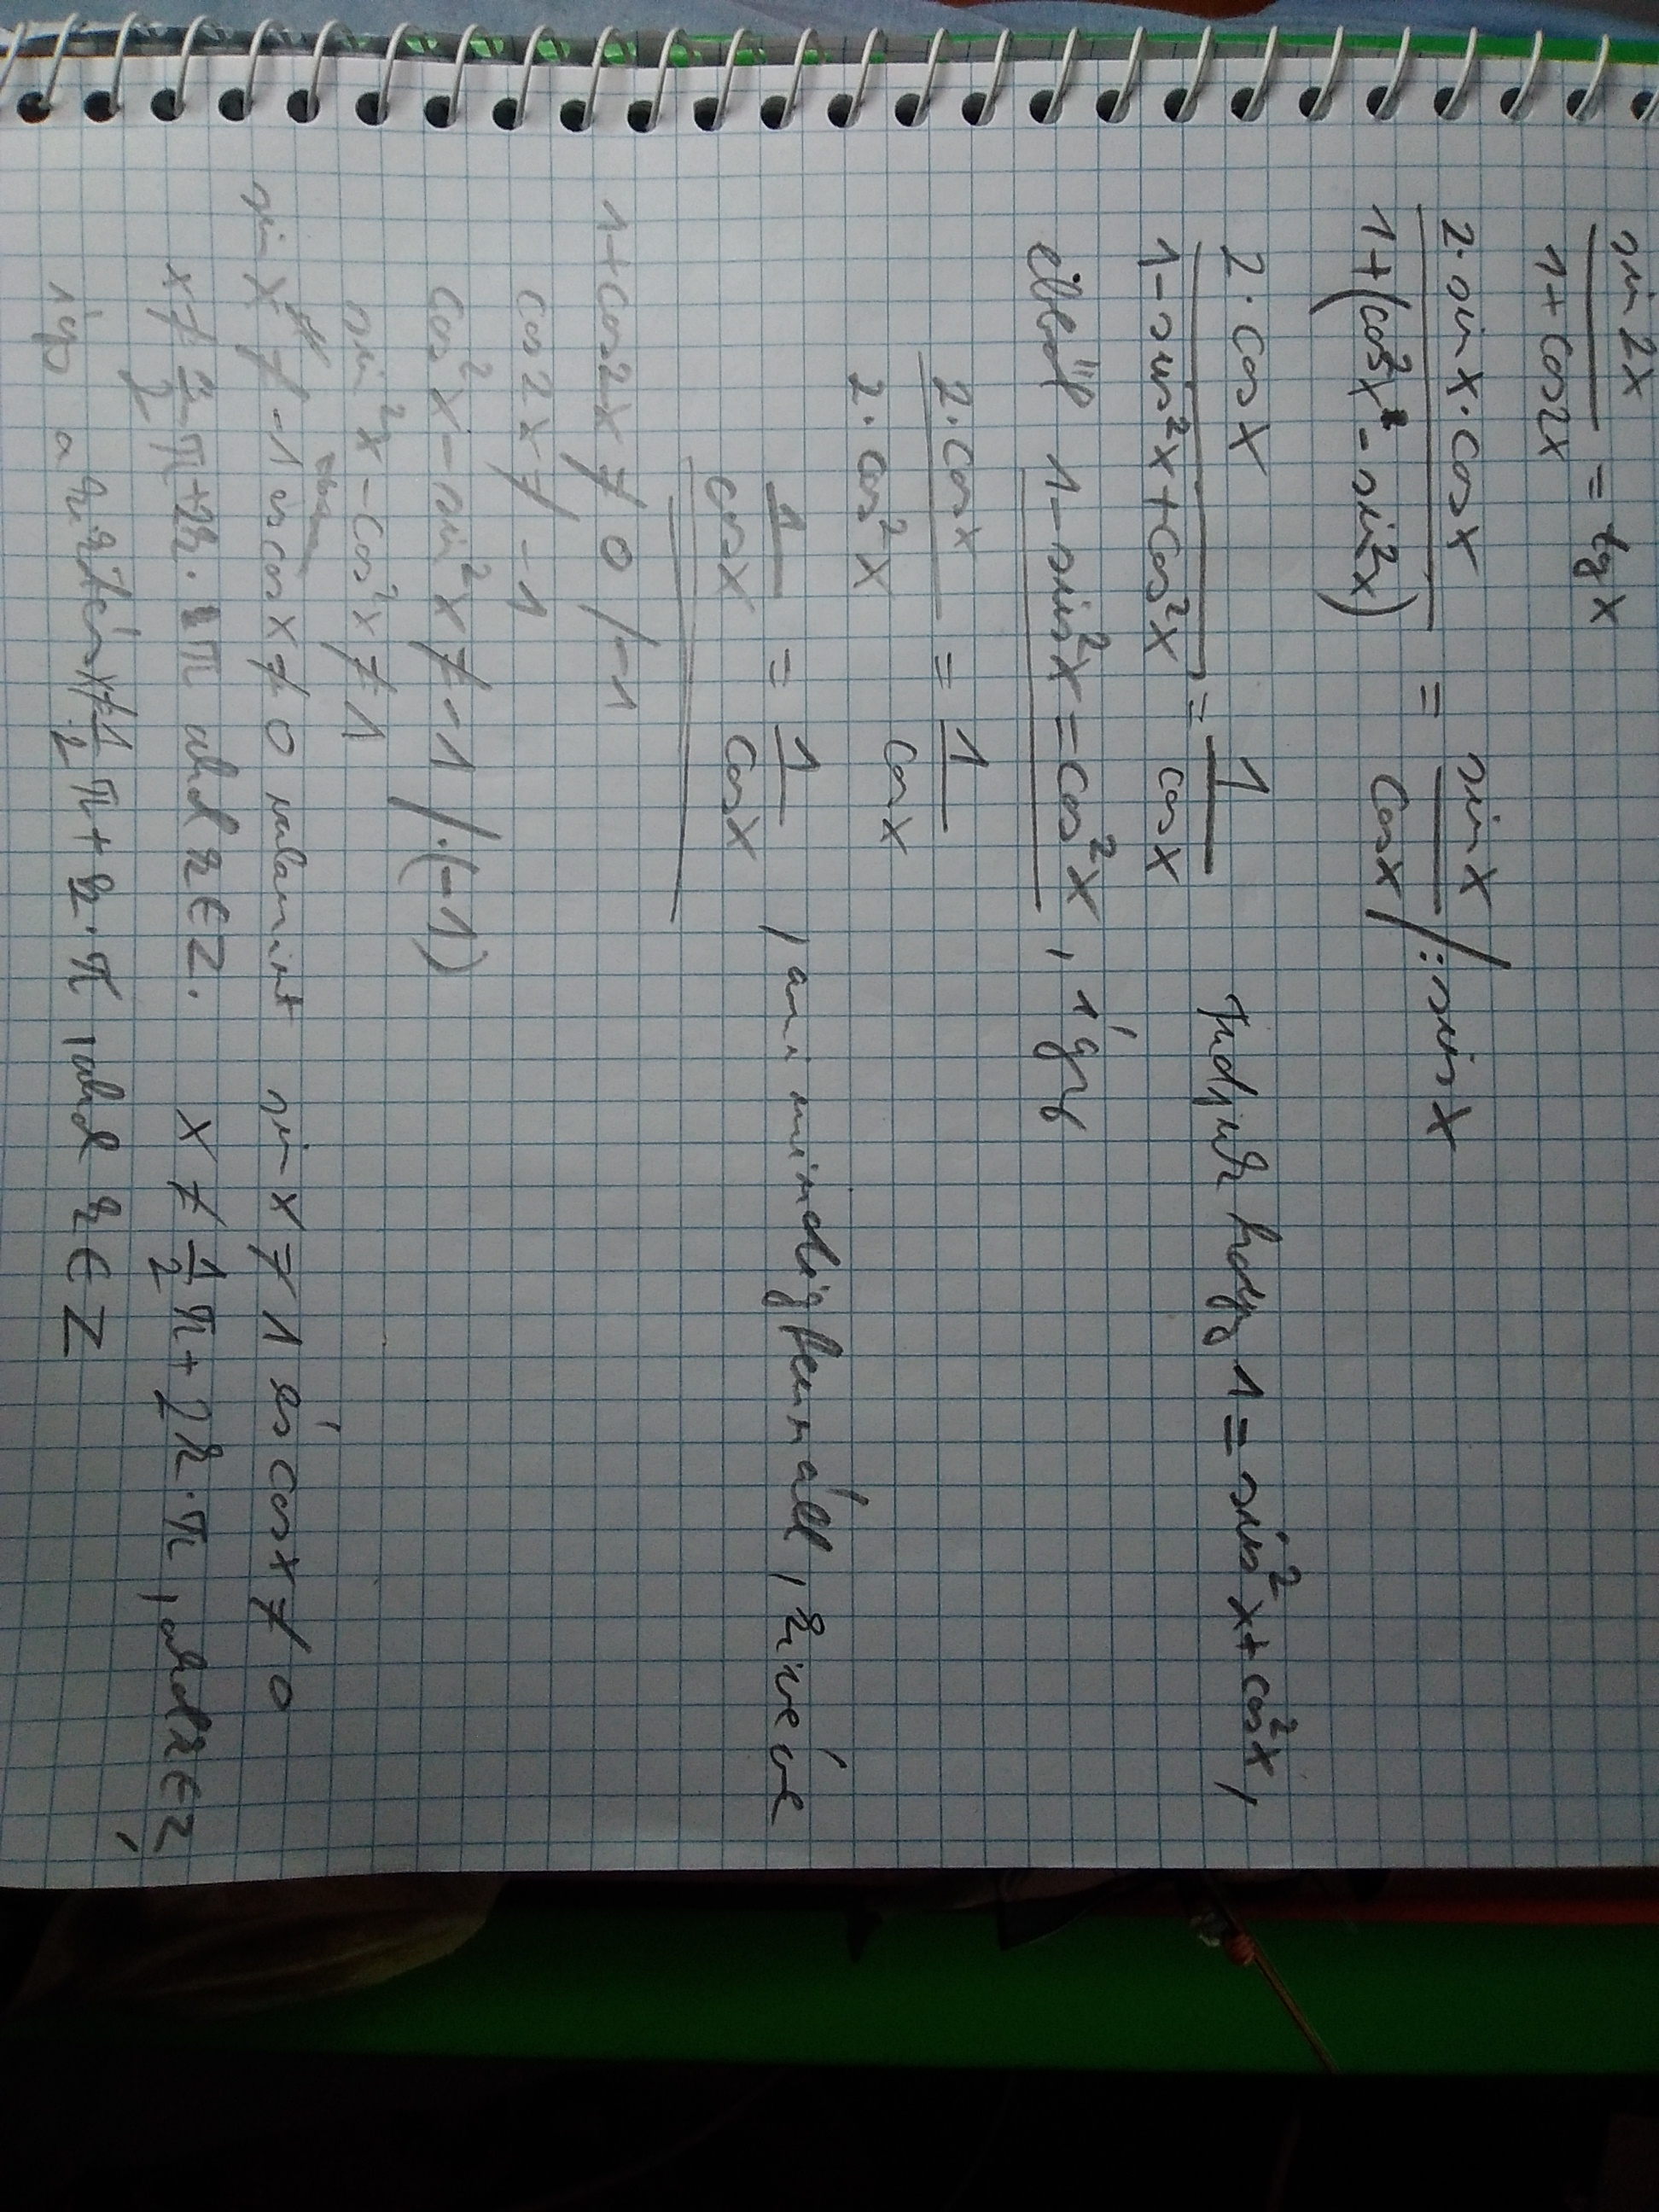 sin 2x / 1+cos2x = tg x
2·sin x·cos x / 1+(cos²x - sin²x) = sin x / cos x /:sin x
2·cos x / 1-sin²x+cos²x = 1 / cos x   tudjuk hogy 1=sin²x+cos²x,
ebből 1-sin²x=cos²x, így
2·cos x / 2·cos²x = 1 / cos x
1 / cos x = 1 / cos x , ami mindig fennáll, kivéve
1+cos2x ≠ 0 /-1
cos2x ≠ -1
cos²x - sin²x ≠ -1 /·(-1)
sin²x - cos²x ≠ 1
sin x ≠ -1 és cos x ≠ 0 valamint sin x ≠ 1 és cos x ≠ 0
x ≠ 3/2 π+2k·π ahol k∈Z.   x ≠ 1/2 π+2k·π, ahol k∈Z,
így a kikötés, x≠1/2 π+k·π, ahol k∈Z